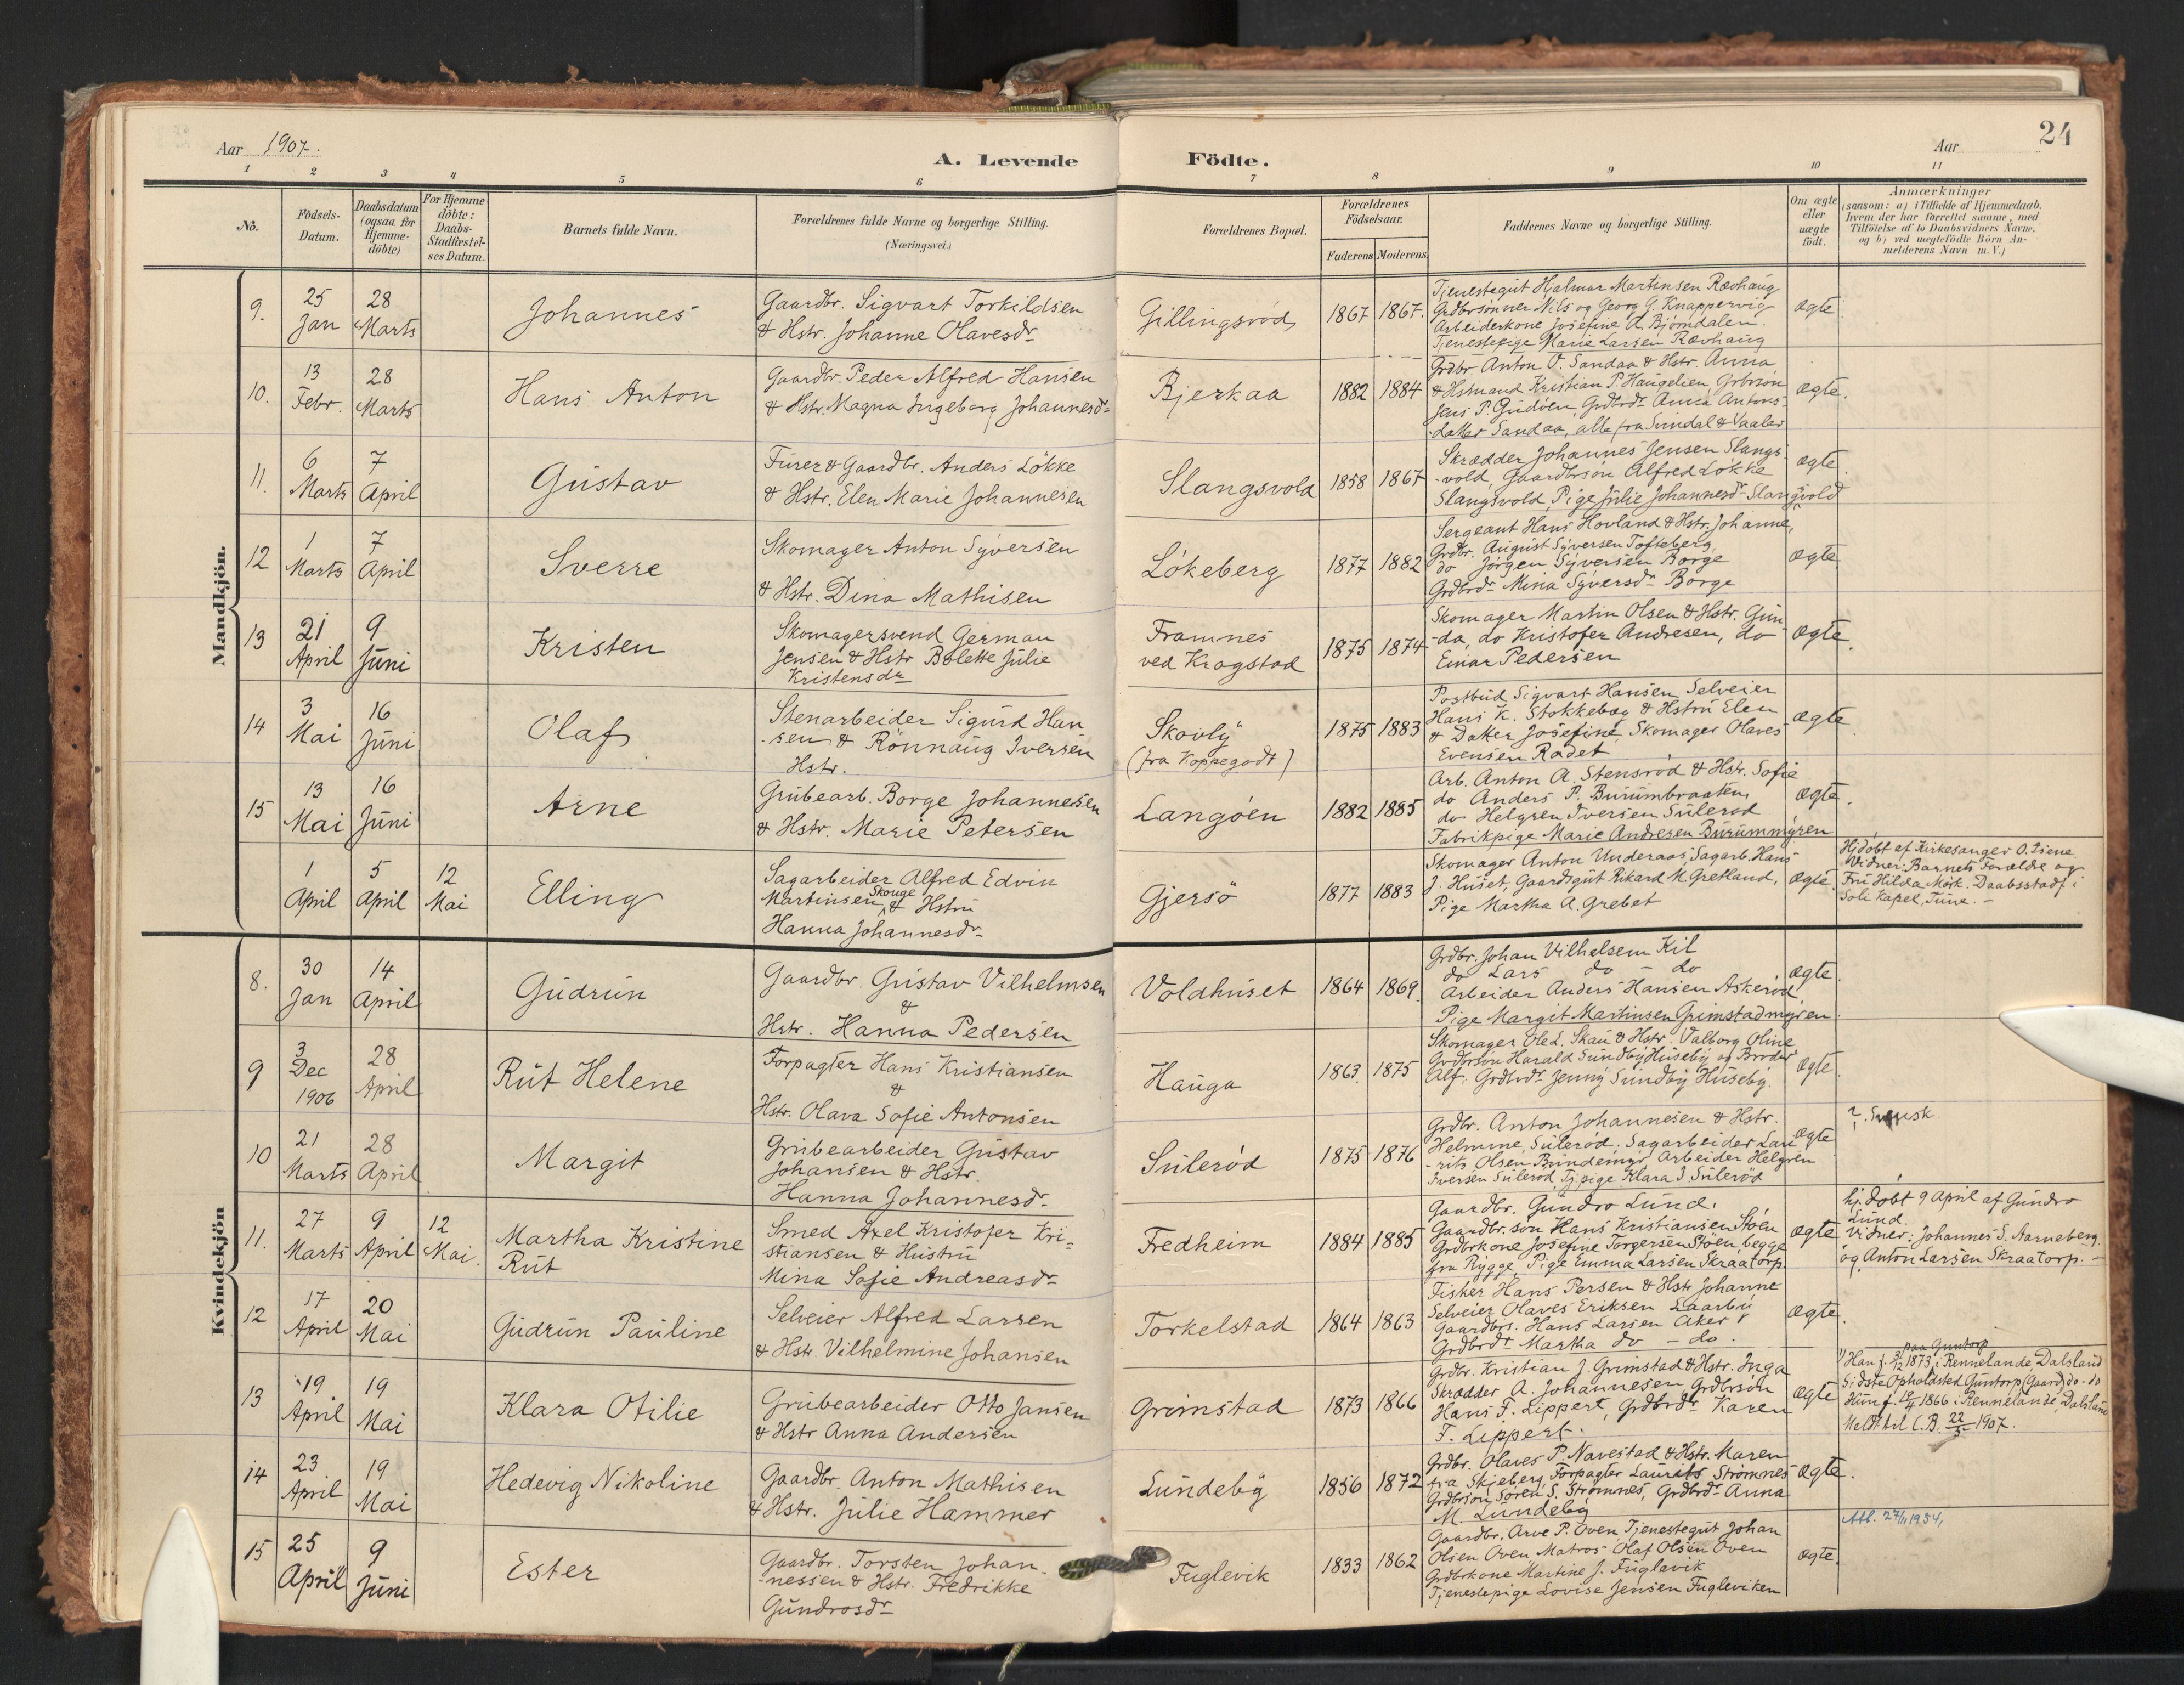 24
Aar 1907.
A. Levende Födte.
Aar
1 2 3 4 5 6 7 8 9 10 11
No.
Födsels-
Datum.
Daabsdatum
(ogsaa for
Hjemme-
döbte)
For Hjemme
döbte:
Daabs-
Stadfæstel-
ses Datum.
Barnets fulde Navn.
Forældrenes fulde Navne og borgerlige Stilling.
(Næringsvei.)
Forældrenes Bopæl.
Forældrenes
Födselsaar.
Faderens Moderens
Faddernes Navne og borgerlige Stilling.
Om ægte
eller
uægte
födt.
Anmærkninger
(saasom: a) i Tilfælde af Hjemmedaab,
hvem der har forrettet samme, med
Tilföielse af to Daabsvidners Navne,
og b) ved uægtefödte Börn An-
melderens Navn m.V.)
Mandkjön.
9.
25
Jan
28
Marts
Johannes
Gaardbr. Sigvart Torkildsen
& Hstr. Johanne Olavesdr
Gillingsröd
1867 1867.
Tjenestegut Hjalmar Martinsen Rævhaug
Grdbrsönner Nils og Georg G. Knappervig
Arbeiderkone Josefine A. Bjørndalen.
Tjenestepige Marie Larsen Rævhaug
ægte
10.
13
Febr.
28
Marts
Hans Anton
Gaardbr. Peder Alfred Hansen
& Hstr. Magna Ingeborg Johannesdr
Bjerkaa
1882 1884
Grdbr. Anton O. Sandaa & Hstr. Anna,
& Hsmand Kristian P. Haugelien, Grbrsön
Jens P. Gudöen, Grdbrdr Anna Antons-
datter Sandaa, alle fra Svindal & Vaaler
ægte.
11.
6
Marts
7
April
Gustav
Furer & Gaardbr. Anders Lökke
& Hstr. Elen Marie Johannesen
Slangsvold
1858 1867
Skrædder Johannes Jensen Slangs-
vold, Gaardbrsön Alfred Lökke
Slangsvold, Pige Julie Johannesdr Slangsvold
ægte.
12
1
Marts
7
April
Sverre
Skomager Anton Syversen
& Hstr. Dina Mathisen
Lökeberg
1877 1882
Sergeant Hans Hovland & Hstr. Johanne,
Grdbr. August Syversen Tofteberg,
do Jörgen Syversen Borge
Grdbrdr Mina Syversdr Borge
ægte
13
21
April
9
Juni
Kristen
Skomagersvend German
Jensen & Hstr Bolette Julie
Kristensdr
Framnes
ved Krogstad
1875 1874
Skomager Martin Olsen & Hstr. Gun-
da, do Kristofer Andresen, do
Einar Pedersen
ægte.
14
3
Mai
16
Juni
Olaf
Stenarbeider Sigurd Han
sen & Rönnaug Iversen
Hstr.
Skovly
(fra Koppegodt)
1875 1883
Postbud Sigvart Hansen Selveier
Hans K. Stokkebæg & Hstru Elen
& Datter Josefine, Skomager Olaves
Evensen Rödet
ægte.
15
13
Mai
16
Juni
Arne
Grubearb. Borge Johannesen
& Hstr. Marie Petersen
Langöen
1882 1885
Arb. Anton A. Stensröd & Hstr. Sofie
do Anders P. Burumbraaten,
do Helgren Iversen Sulerod
Fabrikpige Marie Andresen Burummyren
ægte.
1
April
5
April
12
Mai
Elling
Sagarbeider Alfred Edvin
Martinsen Skouge & Hstru
Hanna Johannesdr
Gjersö
1877 1883
Skomager Anton Underaas, Sagarb. Hans
J. Huset, Gaardsgut Rikard M. Gretland,
Pige Martha A. Grebet
ægte.
Hjdöbt af Kirkesanger O. Liene
Vidner: Barnets Forældre og
Fru Hilda Mørk. Daabsstadf i
Soli Kapel, Tune.
Kvindekjön
8.
30
Jan
14
April
Gudrun
Gaardbr. Gustav Vilhelmsen
&
Hstr. Hanna Pedersen
Voldhuset
1864 1869.
Grdbr. Johan Vilhelsem Kil
do Lars do - do
Arbeider Anders Hansen Askeröd
Pige Margit Martinsen Grimstadmyren
ægte.
9
3
Dec
1906
28
April
Rut Helene
Forpagter Hans Kristiansen
&
Hstr. Olava Sofie Antonsen
Hauga
1863. 1875
Skomager Ole L. Skau & Hstr. Valborg Oline
Grdbrsön Harald Sundby Huseby og Broder
Alf, Grdbrdr Jenny Sundby Huseby.
ægte.
10
21
Marts
28
April
Margit
Grubearbeider Gustav
Johansen & Hstr.
Hanna Johannesdr
Suleröd
1875 1876
Grdbr. Anton Johannesen & Hstr.
Helmine, Suleröd. Sagarbeider Lau-
rits Olsen Bundemyr, Arbeider Helgren
Iversen Suleröd, Tj.pige Klara I Suleröd
ægte
? Svensk.
11.
27
Marts
9
April
12
Mai.
Martha Kristine
Rut
Smed Axel Kristofer Kri=
stiansen & Hustru
Mina Sofie Andreasdr
Fredheim
1884 1885
Gaardbr. Gundro Lund.
Gaardbr.sön Hans Kristiansen Stöen
Grdbrkone Josefine Torgersen Stöen, begge
fra Rygge, Pige Emma Larsen Skraatorp
ægte
hj. döbt 9 April af Gundro
Lund.
Vidner: Johannes S. Aarneberg.
og Anton Larsen Skraatorp.
12
17
April
20
Mai
Gudrun Pauline
Selveier Alfred Larsen
& Hstr. Vilhelmine Johansen
Torkelstad
1864 1863
Fisker Hans Persen & Hstr Johanne
Selveier Olaves Eriksen Laarbu
Gaardbrs. Hans Larsen Aker
Grdbrdr Martha do - do.
ægte.
13
19
April
19
Mai
Klara Otilie
Grubearbeider Otto Jansen
& Hstr Anna Andersen
Grimstad
1873 1866
Grdbr. Kristian J. Grimstad & Hstr. Inga
Skrædder A. Johannesen Grdbrsön
Hans F. Lippert, Grdbrdr Karen
F. Lippert.
ægte
paa Guntorp
1) Han f. 3/12 1873 i Rennelande, Dalsland
Sidste Opholdsted Guntorp (Gaard) do - do
Hun f. 19/4 1866 i Rennelande, Dalsland
Meldt til C.B. 22/5 1907.
14
23
April
19
Mai
Hedevig Nikoline
Gaardbr. Anton Mathisen
& Hstr. Julie Hammer
Lundeby
1856 1872
Grdbr. Olaves P. Navestad & Hstr. Maren
fra Skjeberg, Forpagter Laurits Strømnes
Grdbrsön Sören S. Strömnes, Grdbrdr Anna
M. Lundeby
ægte.
15
25
April
9
Juni
Ester
Gaardbr. Torsten Johan-
nessen & Hstr. Fredrikke
Gundrosdr
Fuglevik
1833 1862
Gaardbr. Arve P. Oven, Tjenestegut Johan
Olsen Oven, Matros Olaf Olsen Oven
Grdbrkone Martine J. Fuglevik
Tjenestepige Lovise Jensen Fugleviken
ægte.
Att. 27/11 1954,